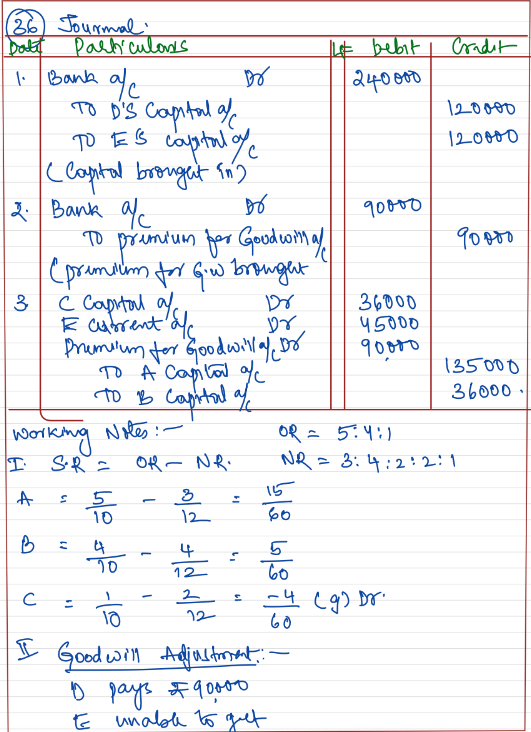 36 Journal:
Date Particulars LF Debit Credit
1. Bank a/c Dr 240000
To D'S Capital a/c 120000
To E S capital a/c 120000
(Capital brought in)
2. Bank a/c Dr 90000
To premium for Goodwill a/c 90000
(premium for G.w brought
3 C Capital a/c Dr 36000
E Current a/c Dr 45000
Premium for Goodwill a/c Dr 90000
To A Capital a/c 135000
To B Capital a/c 36000.
Working Notes:- OR = 5:4:1
I. S.R = OR - NR. NR = 3:4:2:2:1
A = 5/10 - 3/12 = 15/60
B = 4/10 - 4/12 = 5/60
C = 1/10 - 2/12 = -4/60 (g) Dr.
II Goodwill Adjustment:-
D pays ₹90,000
E unable to get